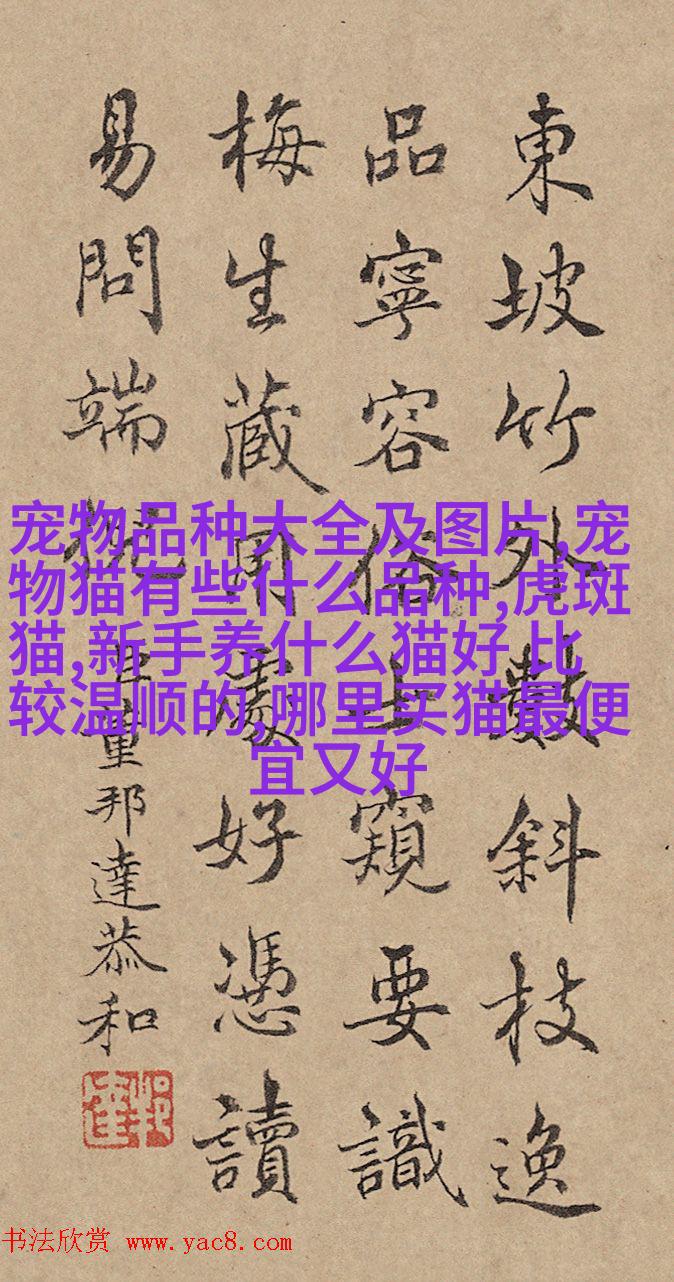 東坡竹外數斜枝逸
品寧容俗士窺要識
梅生藏用處好憑讀
易問端倪
臣董邦達恭和
宠物品种大全及图片,宠
物猫有些什么品种,虎斑
猫,新手养什么猫好,比
较温顺的,哪里买猫最便
宜又好
书法欣赏 www.yac8.com